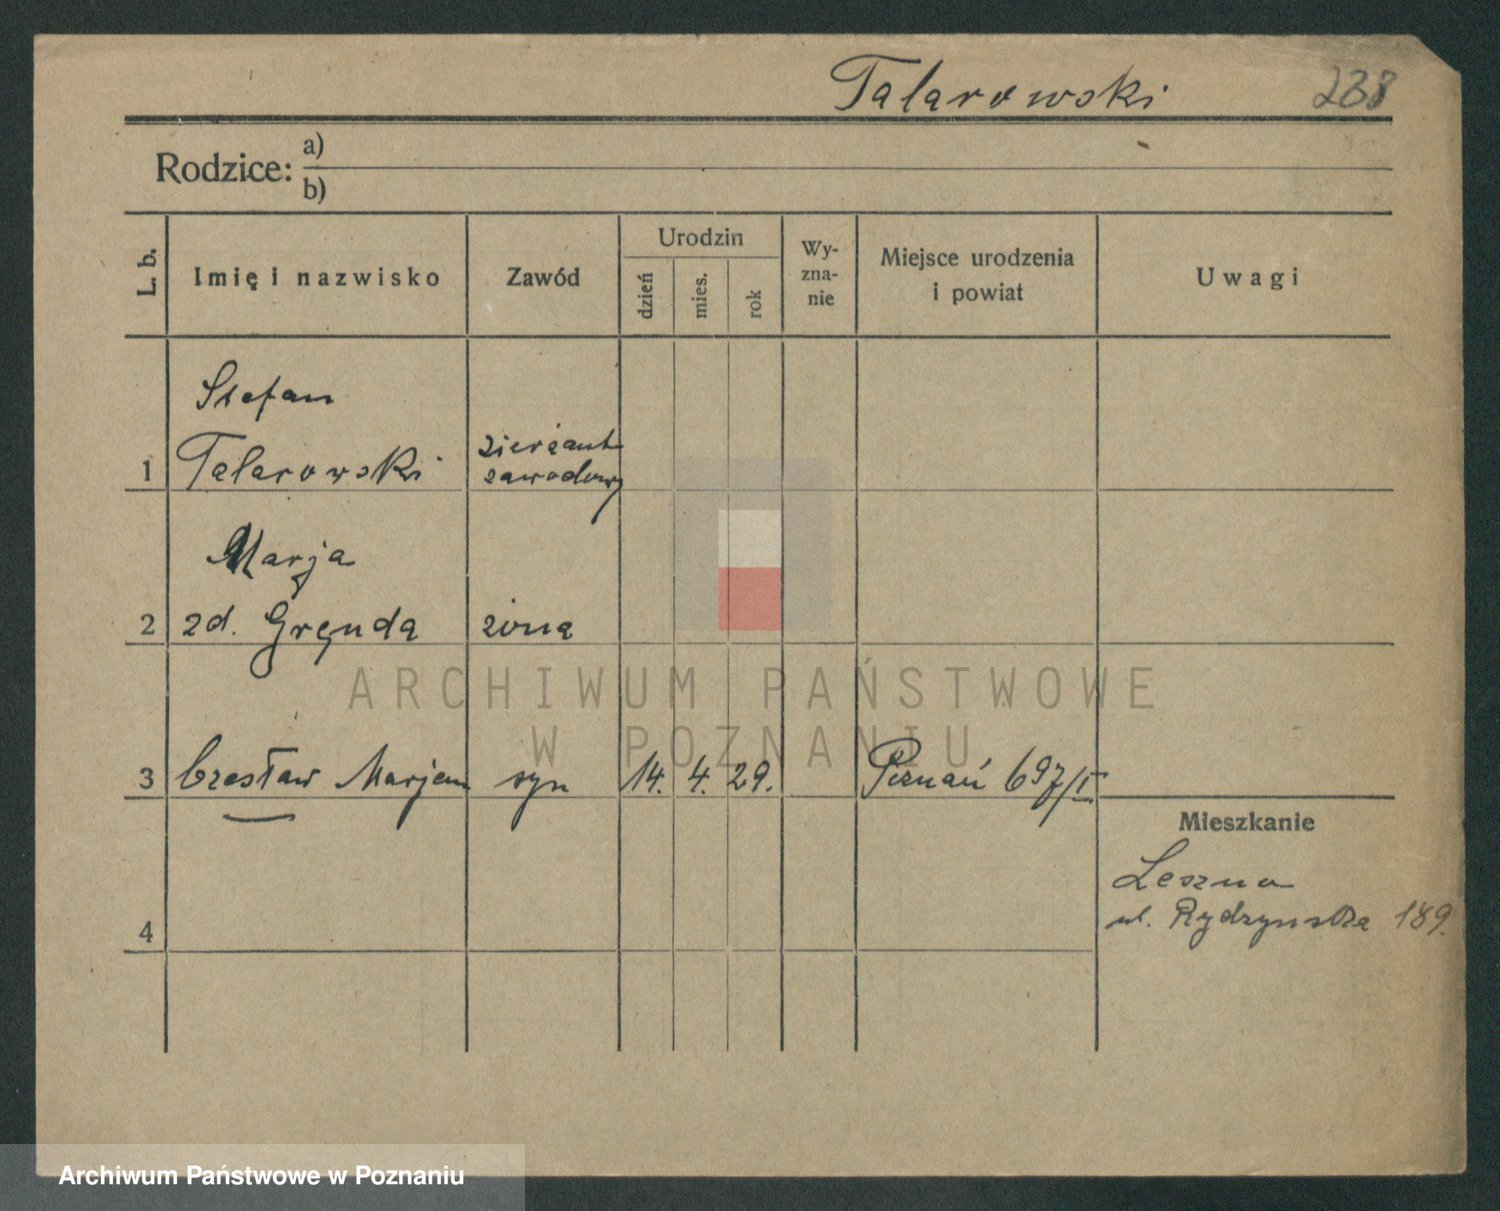 Talarowski 238
Rodzice: a)
b)
L. b. Imię i nazwisko Zawód Urodzin dzień mies. rok Wy-zna-nie Miejsce urodzenia i powiat Uwagi
Stefan
1 Talarowski sierżant zawodowy
Marja
2 zd. Gręnda żona
3 Czesław Marjan syn 14. 4. 29. Poznań 697/I
Mieszkanie
Leszno
4 ul. Rydzyńska 189.
ARCHIWUM PAŃSTWOWE
W POZNANIU
Archiwum Państwowe w Poznaniu